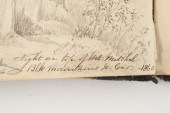 Night on top of Mt. Mitchel
Blk mountains N. Car - 186